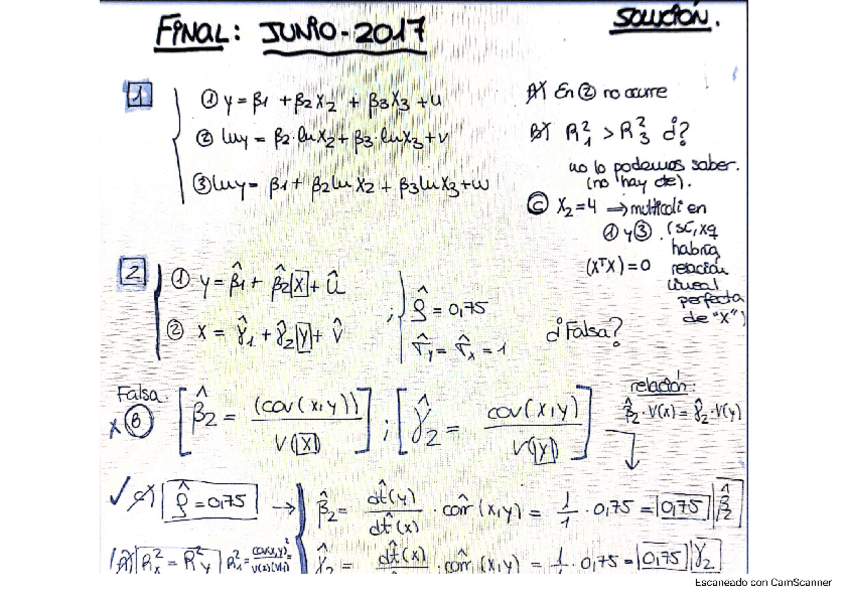 FINAL: JUNIO-2017
SOLUCIÓN.
1
① y = β1 + β2X2 + β3X3 + u
② lny = β2·lnX2 + β3·lnX3 + v
③ lny = β1 + β2lnX2 + β3lnX3 + w
A) En ② no ocurre
B) R₁² > R₃² ¿?
no lo podemos saber.
(no hay de).
Ⓒ X2 = 4 → multicoli en
① y ③. (sí, xq
habría
(XᵀX) = 0 relación
lineal
perfecta
de "X")
2
① y = β̂1 + β̂2 X + û
② x = γ̂1 + γ̂2 y + v̂
; ρ̂ = 0,75
σ̂y = σ̂x = 1
¿Falsa?
Falsa.
x Ⓑ [β̂2 = (cov(x,y)) / V(x)] ; [γ̂2 = cov(x,y) / V(y)]
relación:
β̂2·V(x) = γ̂2·V(y)
✓ ρ̂ = 0,75 → β̂2 = dt̂(y) / dt̂(x) · corr̂(x,y) = 1/1 · 0,75 = 0,75 β̂2
Rx² = Ry² γ̂2 = dt̂(x) · corr̂(x,y) = 1 · 0,75 = 0,75 γ̂2
Escaneado con CamScanner